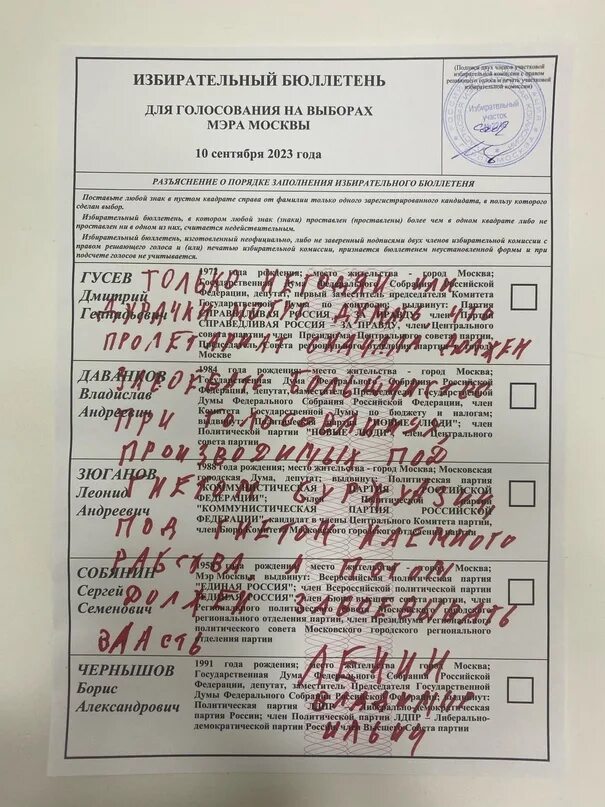 (Подписи двух членов участковой
избирательной комиссии с правом
решающего голоса и печать участковой
избирательной комиссии)
ИЗБИРАТЕЛЬНЫЙ БЮЛЛЕТЕНЬ
ДЛЯ ГОЛОСОВАНИЯ НА ВЫБОРАХ
МЭРА МОСКВЫ
10 сентября 2023 года
Избирательный
участок
РАЗЪЯСНЕНИЕ О ПОРЯДКЕ ЗАПОЛНЕНИЯ ИЗБИРАТЕЛЬНОГО БЮЛЛЕТЕНЯ
Поставьте любой знак в пустом квадрате справа от фамилии только одного зарегистрированного кандидата, в пользу которого
сделан выбор.
Избирательный бюллетень, в котором любой знак (знаки) проставлен (проставлены) более чем в одном квадрате либо не
проставлен ни в одном из них, считается недействительным.
Избирательный бюллетень, изготовленный неофициально, либо не заверенный подписями двух членов избирательной комиссии с
правом решающего голоса и (или) печатью избирательной комиссии, признается бюллетенем неустановленной формы и при
подсчете голосов не учитывается.
ГУСЕВ
Дмитрий
Геннадьевич
1972 года рождения; место жительства - город Москва;
Государственная Дума Федерального Собрания Российской
Федерации, депутат, первый заместитель председателя Комитета
Государственной Думы по контролю; выдвинут: Партия
СПРАВЕДЛИВАЯ РОССИЯ - ЗА ПРАВДУ, член Центрального
Москве
ДАВАНКОВ
Владислав
Андреевич
1984 года рождения; место жительства - город Москва;
Думы Федерального Собрания Российской Федерации, член
Комитета Государственной Думы по бюджету и налогам;
Политической партии "НОВЫЕ ЛЮДИ", член Центрального
совета партии
ЗЮГАНОВ
Леонид
Андреевич
1988 года рождения; место жительства - город Москва; Московская
городская Дума, депутат; выдвинут: Политическая партия
"КОММУНИСТИЧЕСКАЯ ПАРТИЯ РОССИЙСКОЙ
ФЕДЕРАЦИИ"; член Политической партии
"КОММУНИСТИЧЕСКАЯ ПАРТИЯ РОССИЙСКОЙ
ФЕДЕРАЦИИ", кандидат в члены Центрального Комитета партии,
член Бюро Комитета Московского городского отделения партии
СОБЯНИН
Сергей
Семенович
1958 года рождения; место жительства - город Москва;
Мэр Москвы; выдвинут: Всероссийская политическая партия
"ЕДИНАЯ РОССИЯ"; член Всероссийской политической партии
"ЕДИНАЯ РОССИЯ", член Бюро Высшего совета партии, член
Регионального политического совета Московского городского
регионального отделения партии, член Президиума Регионального
политического совета Московского городского регионального
отделения партии
ЧЕРНЫШОВ
Борис
Александрович
1991 года рождения; место жительства - город Москва;
Государственная Дума Федерального Собрания Российской
Федерации, депутат, заместитель Председателя Государственной
Думы Федерального Собрания Российской Федерации; выдвинут:
Политическая партия ЛДПР - Либерально-демократическая
партия России; член Политической партии ЛДПР - Либерально-
демократической партии России, член Высшего Совета партии
ТОЛЬКО НЕГОДЯИ ИЛИ
ДУРАЧКИ МОГУТ ДУМАТЬ, ЧТО
ПРОЛЕТАРИАТ СНАЧАЛА ДОЛЖЕН
ЗАВОЕВАТЬ БОЛЬШИНСТВО
ПРИ ГОЛОСОВАНИЯХ,
ПРОИЗВОДИМЫХ ПОД
ГНЕТОМ БУРЖУАЗИИ,
ПОД ГНЕТОМ НАЕМНОГО
РАБСТВА, А ПОТОМ
ДОЛЖЕН ЗАВОЕВЫВАТЬ
ВЛАСТЬ
ЛЕНИН
ВЛАДИМИР
ИЛЬИЧ